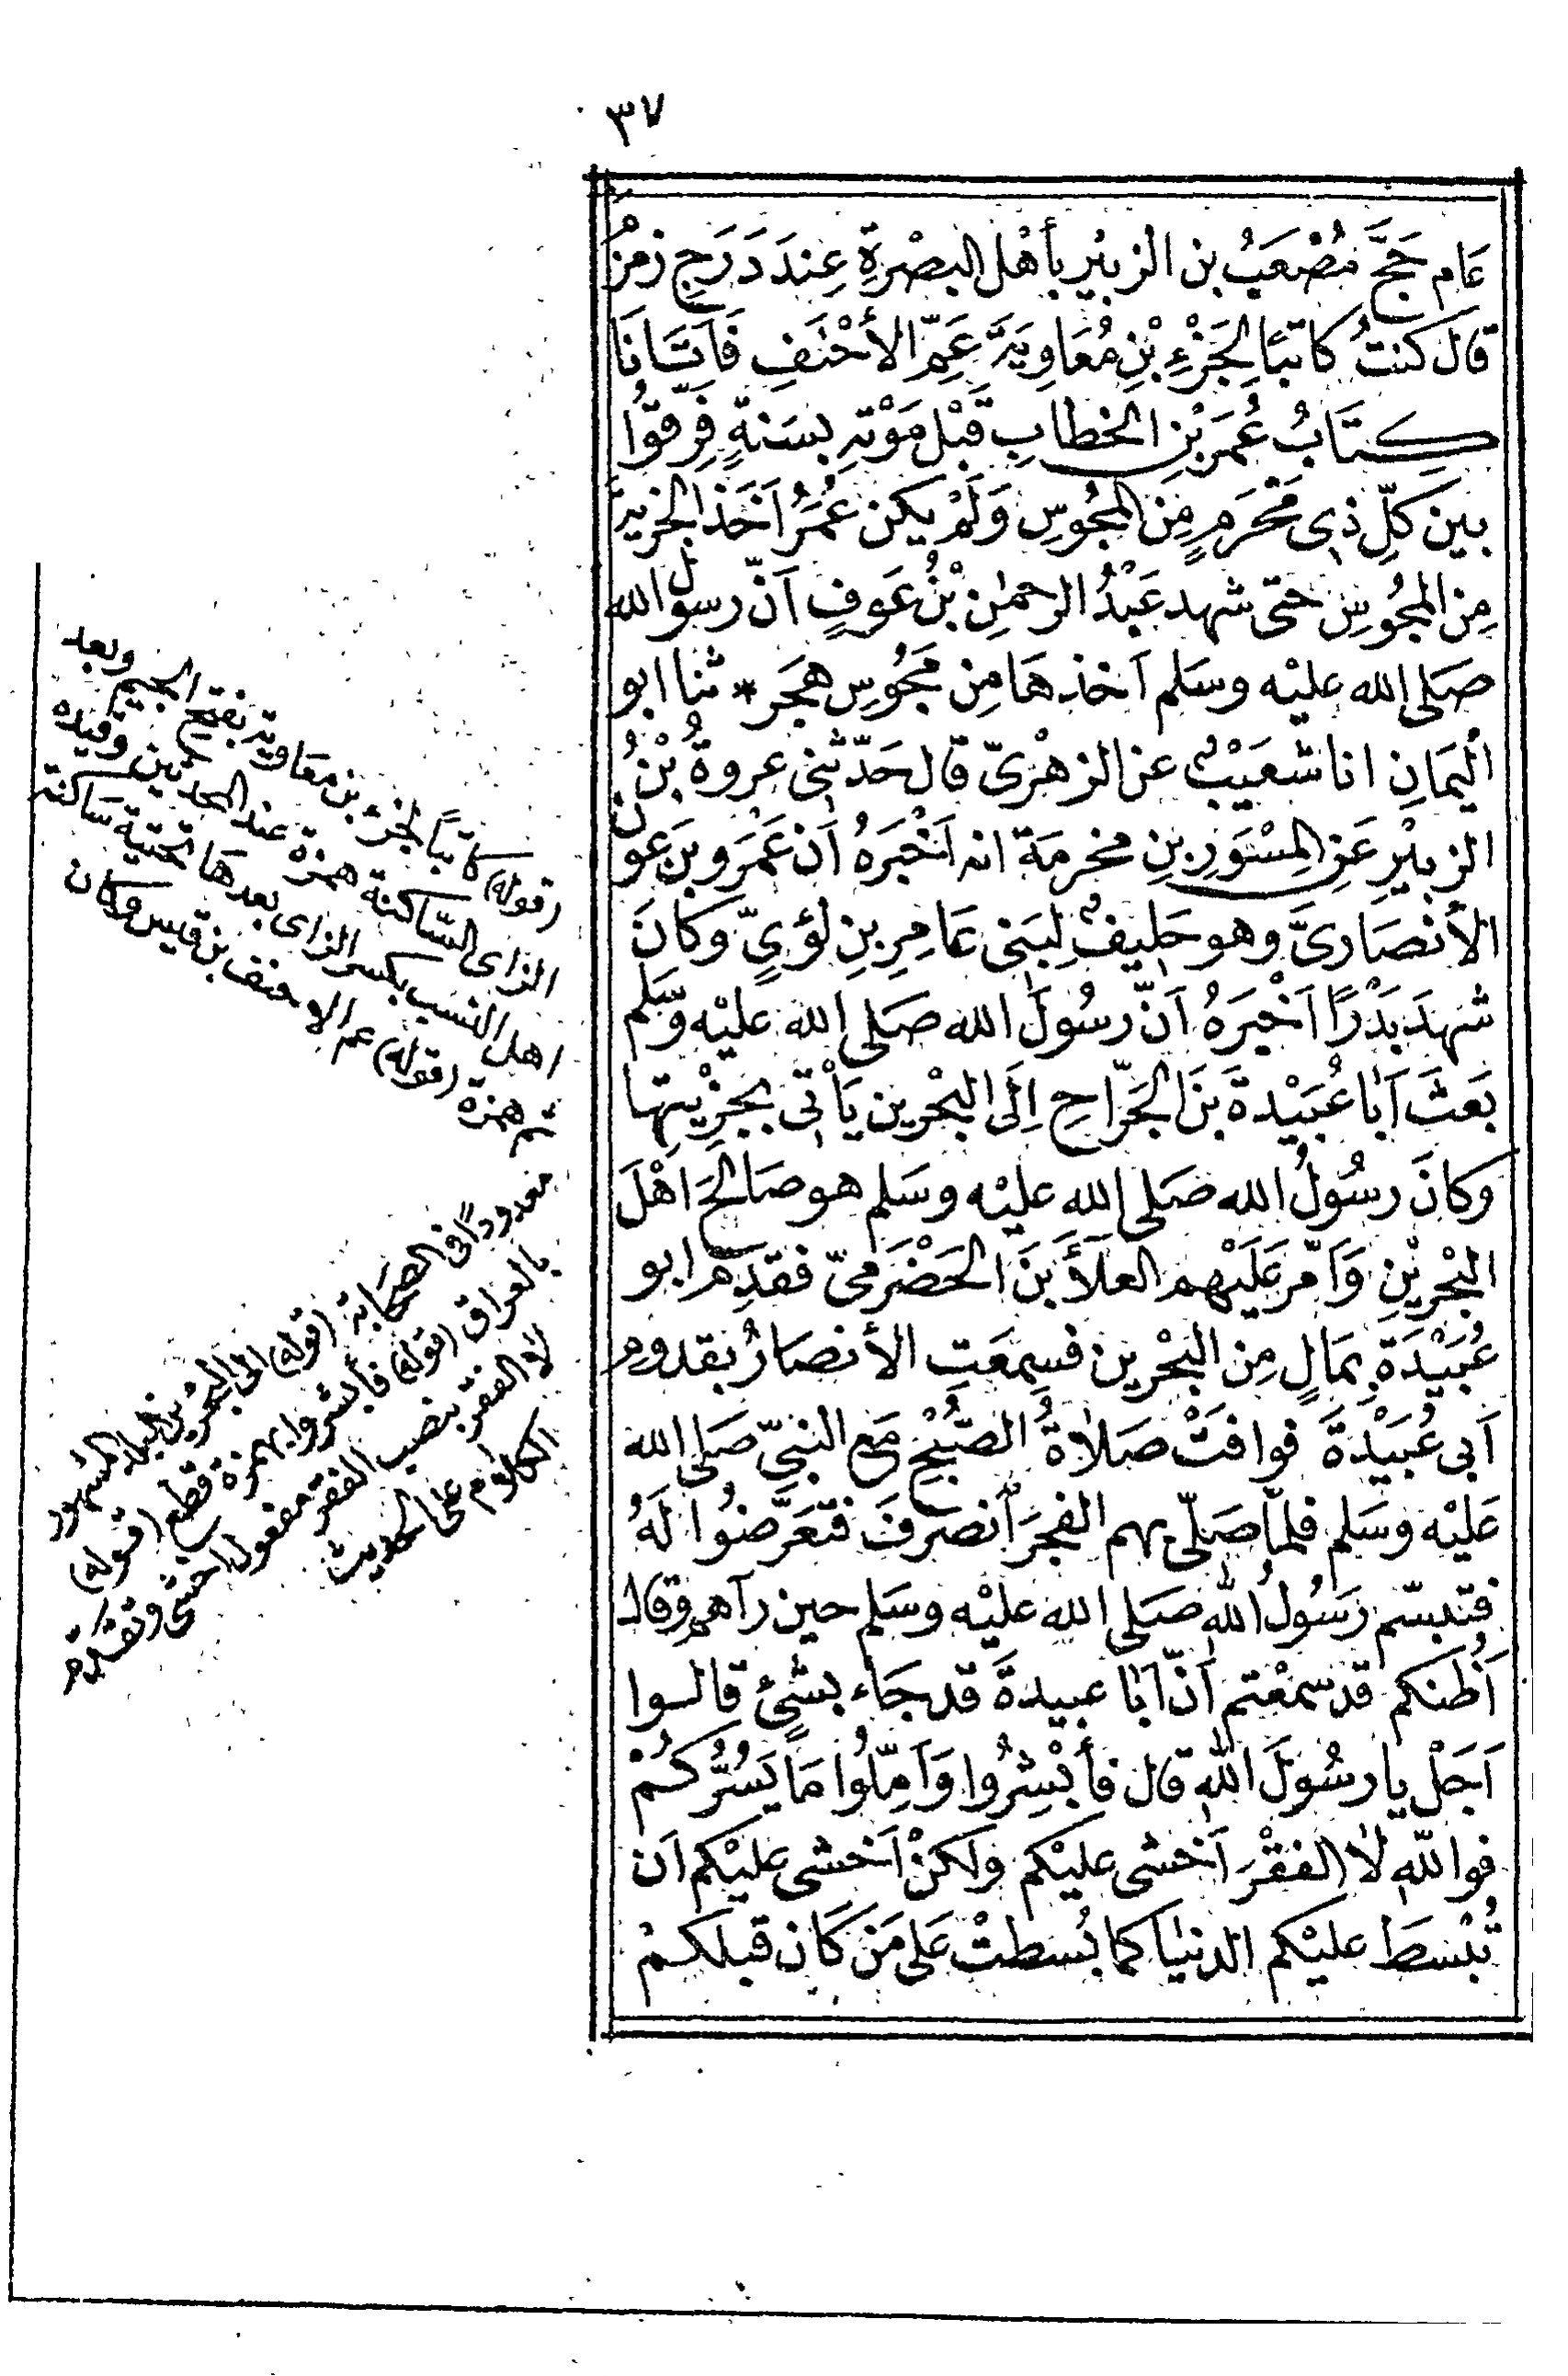 ٣٧
عَام حَجَّ مُصْعَبُ بن الزبيْر بأهْل البصْرةِ عِندَ دَرَجِ زمزَ
قال كنتُ كاتبًا لِجَزْءِ بْنِ مُعَاوِيَةَ عَمِّ الأحْنَفِ فَاَتَانَا
كِتَابُ عُمَرَ بْنِ الخطابِ قَبْل مَوْتِهِ بسَنةٍ فَرِّقُوا
بين كلِّ ذِى مَحْرَمٍ مِنَ المجُوسِ وَلَمْ يكن عُمَرُ اَخَذَ الجزيةَ
مِنَ المجُوسِ حتى شهد عَبْدُ الرحمٰنِ بْنُ عَوفٍ اَنّ رسول الله
صَلى الله عليْه وسَلم اَخذهَا مِن مَجُوسِ هجَر * ثنا ابو
اليَمَانِ انا شعَيْبٌ عن الزهْرىّ قال حَدّثنِى عروةُ بْنُ
الزبيْرِ عَنِ المِسْوَرِ بنِ مخرمَة انه اَخْبَرَهُ اَن عَمْرَو بنَ عَوفٍ
الأنصَارىَّ وهو حَلِيفٌ لِبَنى عَامِرِ بنِ لؤىٍّ وكانَ
شهدَ بَدْرًا اَخْبَرَهُ اَنّ رسُولَ الله صَلى الله عليْه وسَّلم
بَعَثَ اَبَا عُبَيْدةَ بنَ الجَرّاحِ اِلَى البحْرين يَأْتِى بجِزْيتِها
وَكانَ رسُولُ الله صَلى الله عليْه وسَلم هو صَالحَ اهْلَ
البحْريْنِ وَاَمّر عَلَيْهم العلآءَ بنَ الحَضْرَمىّ فقدِمَ ابو
عُبَيْدَةَ بِمَالٍ مِن البحْرين فسمِعَتِ الأنصَارُ بقدومِ
اَبى عُبَيْدةَ فوافَتْ صَلاةَ الصُّبْحِ مَع النبىِّ صَلى الله
عَليْه وسَلم فلمّا صَلّى بهم الفجرَ اَنصَرفَ فتعَرَّضُوا لَهُ
فتبسّم رَسُولُ اللّٰهِ صَلى الله عليْه وسَلم حين رآهم وقال
اَظنكم قد سمعْتم اَنّ اَبَا عبيدةَ قد جَاء بشئٍ قالوا
اَجَلْ يا رسُولَ اللّٰهِ قال فأَبْشِرُوا وَاَمِّلُوا مَا يَسُرُّكُمْ
فواللّٰهِ لاَ الفقْرَ اَخشى عليْكم ولكنْ اَخشى عليْكم اَن
تُبْسَطَ عليْكم الدنيَا كما بُسطتْ عَلى مَن كَان قبلكمْ
(قوله) كاتبًا لجزء بن معاوية بفتح الجيم وبعد
الزاى السّاكنة همزة عند المحدّثين وقيده
اهل النسب بكسر الزاى بعدها تحتية سَاكنة
ثم همزة (قوله) عم الاحنف بن قيس وكان
معدودًا فى الصحَابة (قوله) الى البحرين البلد المشهور
بالعراق (قوله) فأبشروا بهمزة قطع (قوله)
لا الفقر بنصب الفقر مفعول اخشى وتقدم
الكلام على الحديث